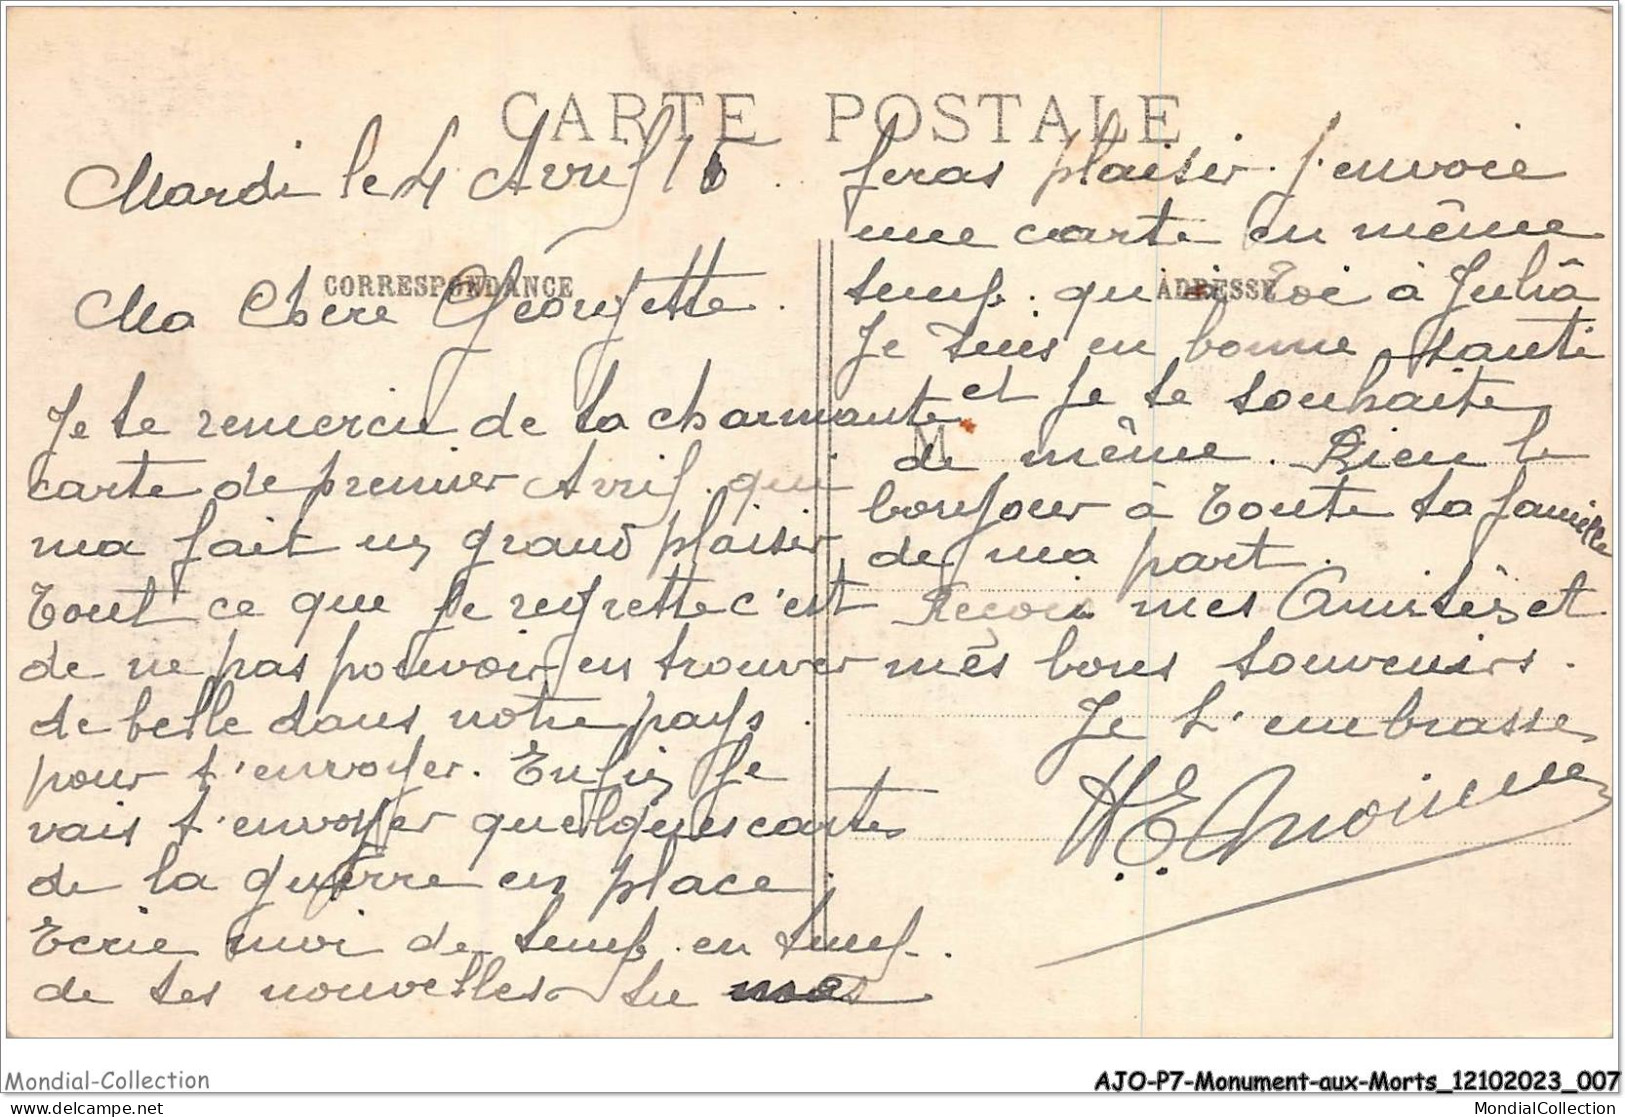 CARTE POSTALE
Mardi le 4 Avril 16.
CORRESPONDANCE
Ma Chere Georgette.
Je te remercie de ta charmante
carte de premier Avril. qui
ma fait un grand plaisir
Tout ce que je regrette c'est
de ne pas pouvoir en trouver
de belle dans notre pays.
pour t'envoyer. Enfin je
vais t'envoyer quelques cartes
de la guerre en place.
Ecrie moi de temp. en temp.
de tes nouvelles tu mes
feras plaisir. j'envoie
une carte en même
temp. qu'a Toi à Julia
ADRESSE
Je suis en bonne santé
et je te souhaite
M
de même. Bien le
bonjour à toute ta famille
de ma part.
Reçois mes Amitiés et
mes bons souvenirs.
Je t'embrasse
H E
Mondial-Collection
AJO-P7-Monument-aux-Morts_12102023_007
mondial-collection
MondialCollection